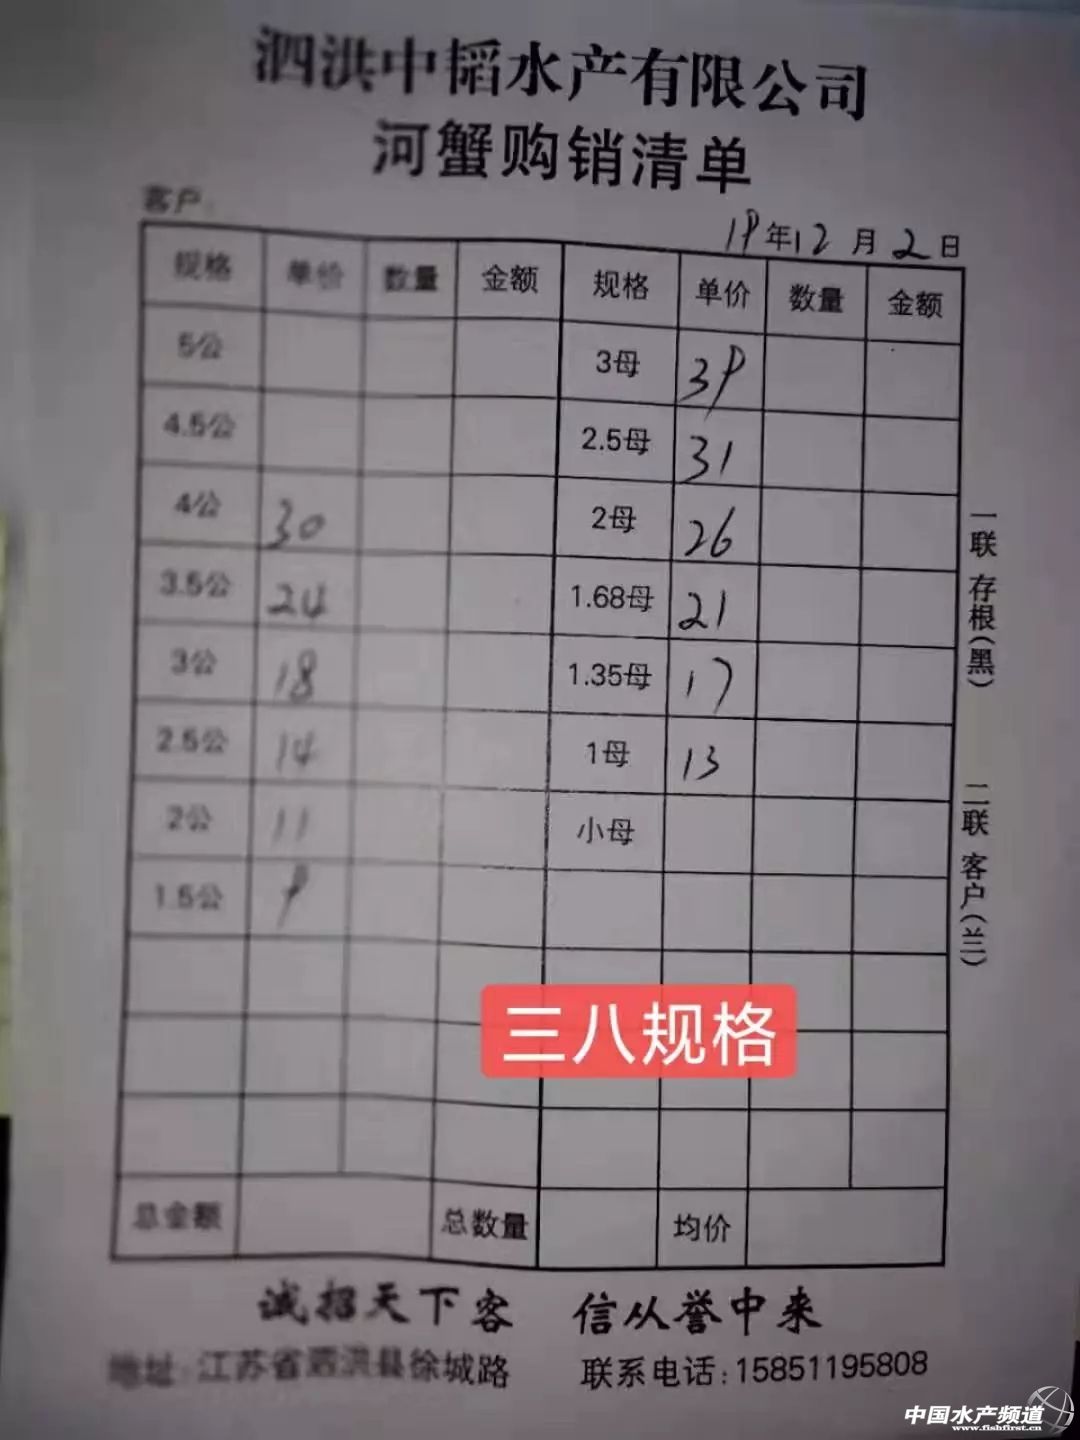 泗洪中韬水产有限公司
河蟹购销清单
客户:
19年12月2日
规格 单价 数量 金额 规格 单价 数量 金额
5公 3母 39
4.5公 2.5母 31
4公 30 2母 26
3.5公 24 1.68母 21
3公 18 1.35母 17
2.5公 14 1母 13
2公 11 小母
1.5公 9
三八规格
总金额 总数量 均价
一联 存根(黑)
二联 客户(兰)
诚招天下客 信从誉中来
地址:江苏省泗洪县徐城路 联系电话:15851195808
中国水产频道
www.fishfirst.cn